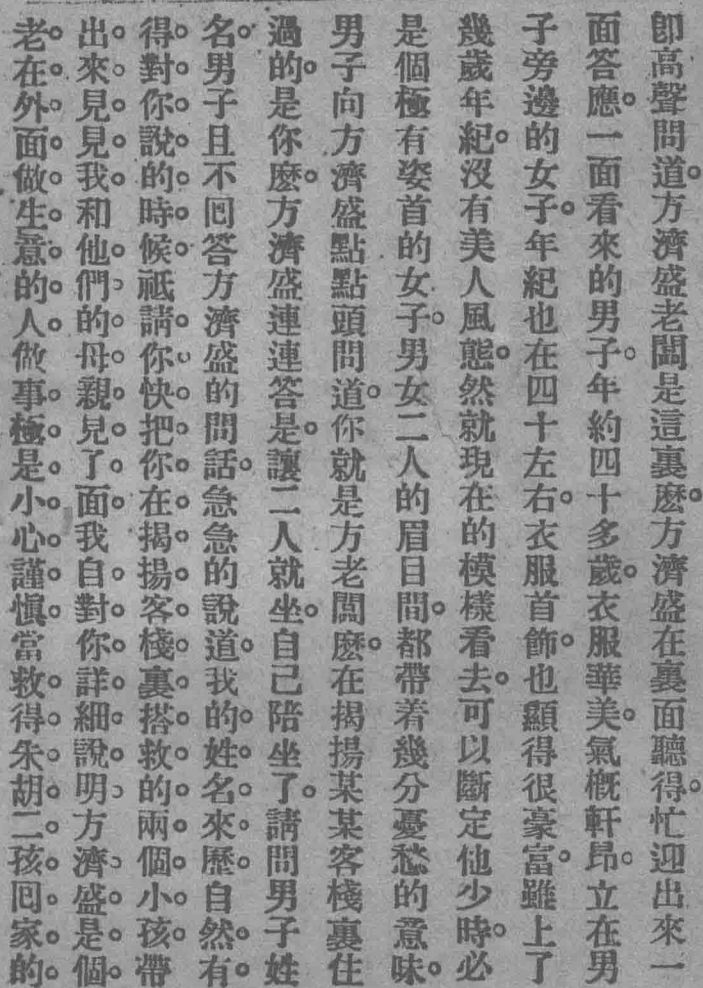 卽高聲問道。方濟盛老闆是這裏麽。方濟盛在裏面聽得。忙迎出來一
面答應。一面看來的男子。年約四十多歲。衣服華美。氣概軒昂。立在男
子旁邊的女子。年紀也在四十左右。衣服首飾。也顯得很豪富。雖上了
幾歲年紀。沒有美人風態。然就現在的模樣看去。可以斷定他少時。必
是個極有姿首的女子。男女二人的眉目間。都帶着幾分憂愁的意味。
男子向方濟盛點點頭問道。你就是方老闆麽。在揭揚某某客棧裏住
過的。是你麽。方濟盛連連答是。讓二人就坐。自己陪坐了。請問男子姓
名。男子且不囘答方濟盛的問話。急急的說道。我的姓名來歷。自然有。
得對你說的時候。祗請你快把你在揭揚客棧裏搭救的兩個小孩帶
出來見見。我和他們的母親見了面。我自對你詳細說明。方濟盛是個。
老在外面做生意的人。做事極是小心謹愼。當救得朱胡二孩囘家的。